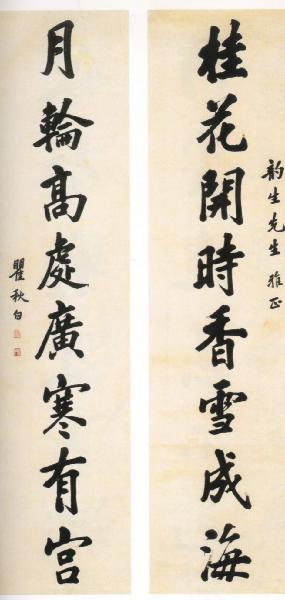 韵生先生雅正
桂花開時香雪成海
月輪高處廣寒有宫
瞿秋白